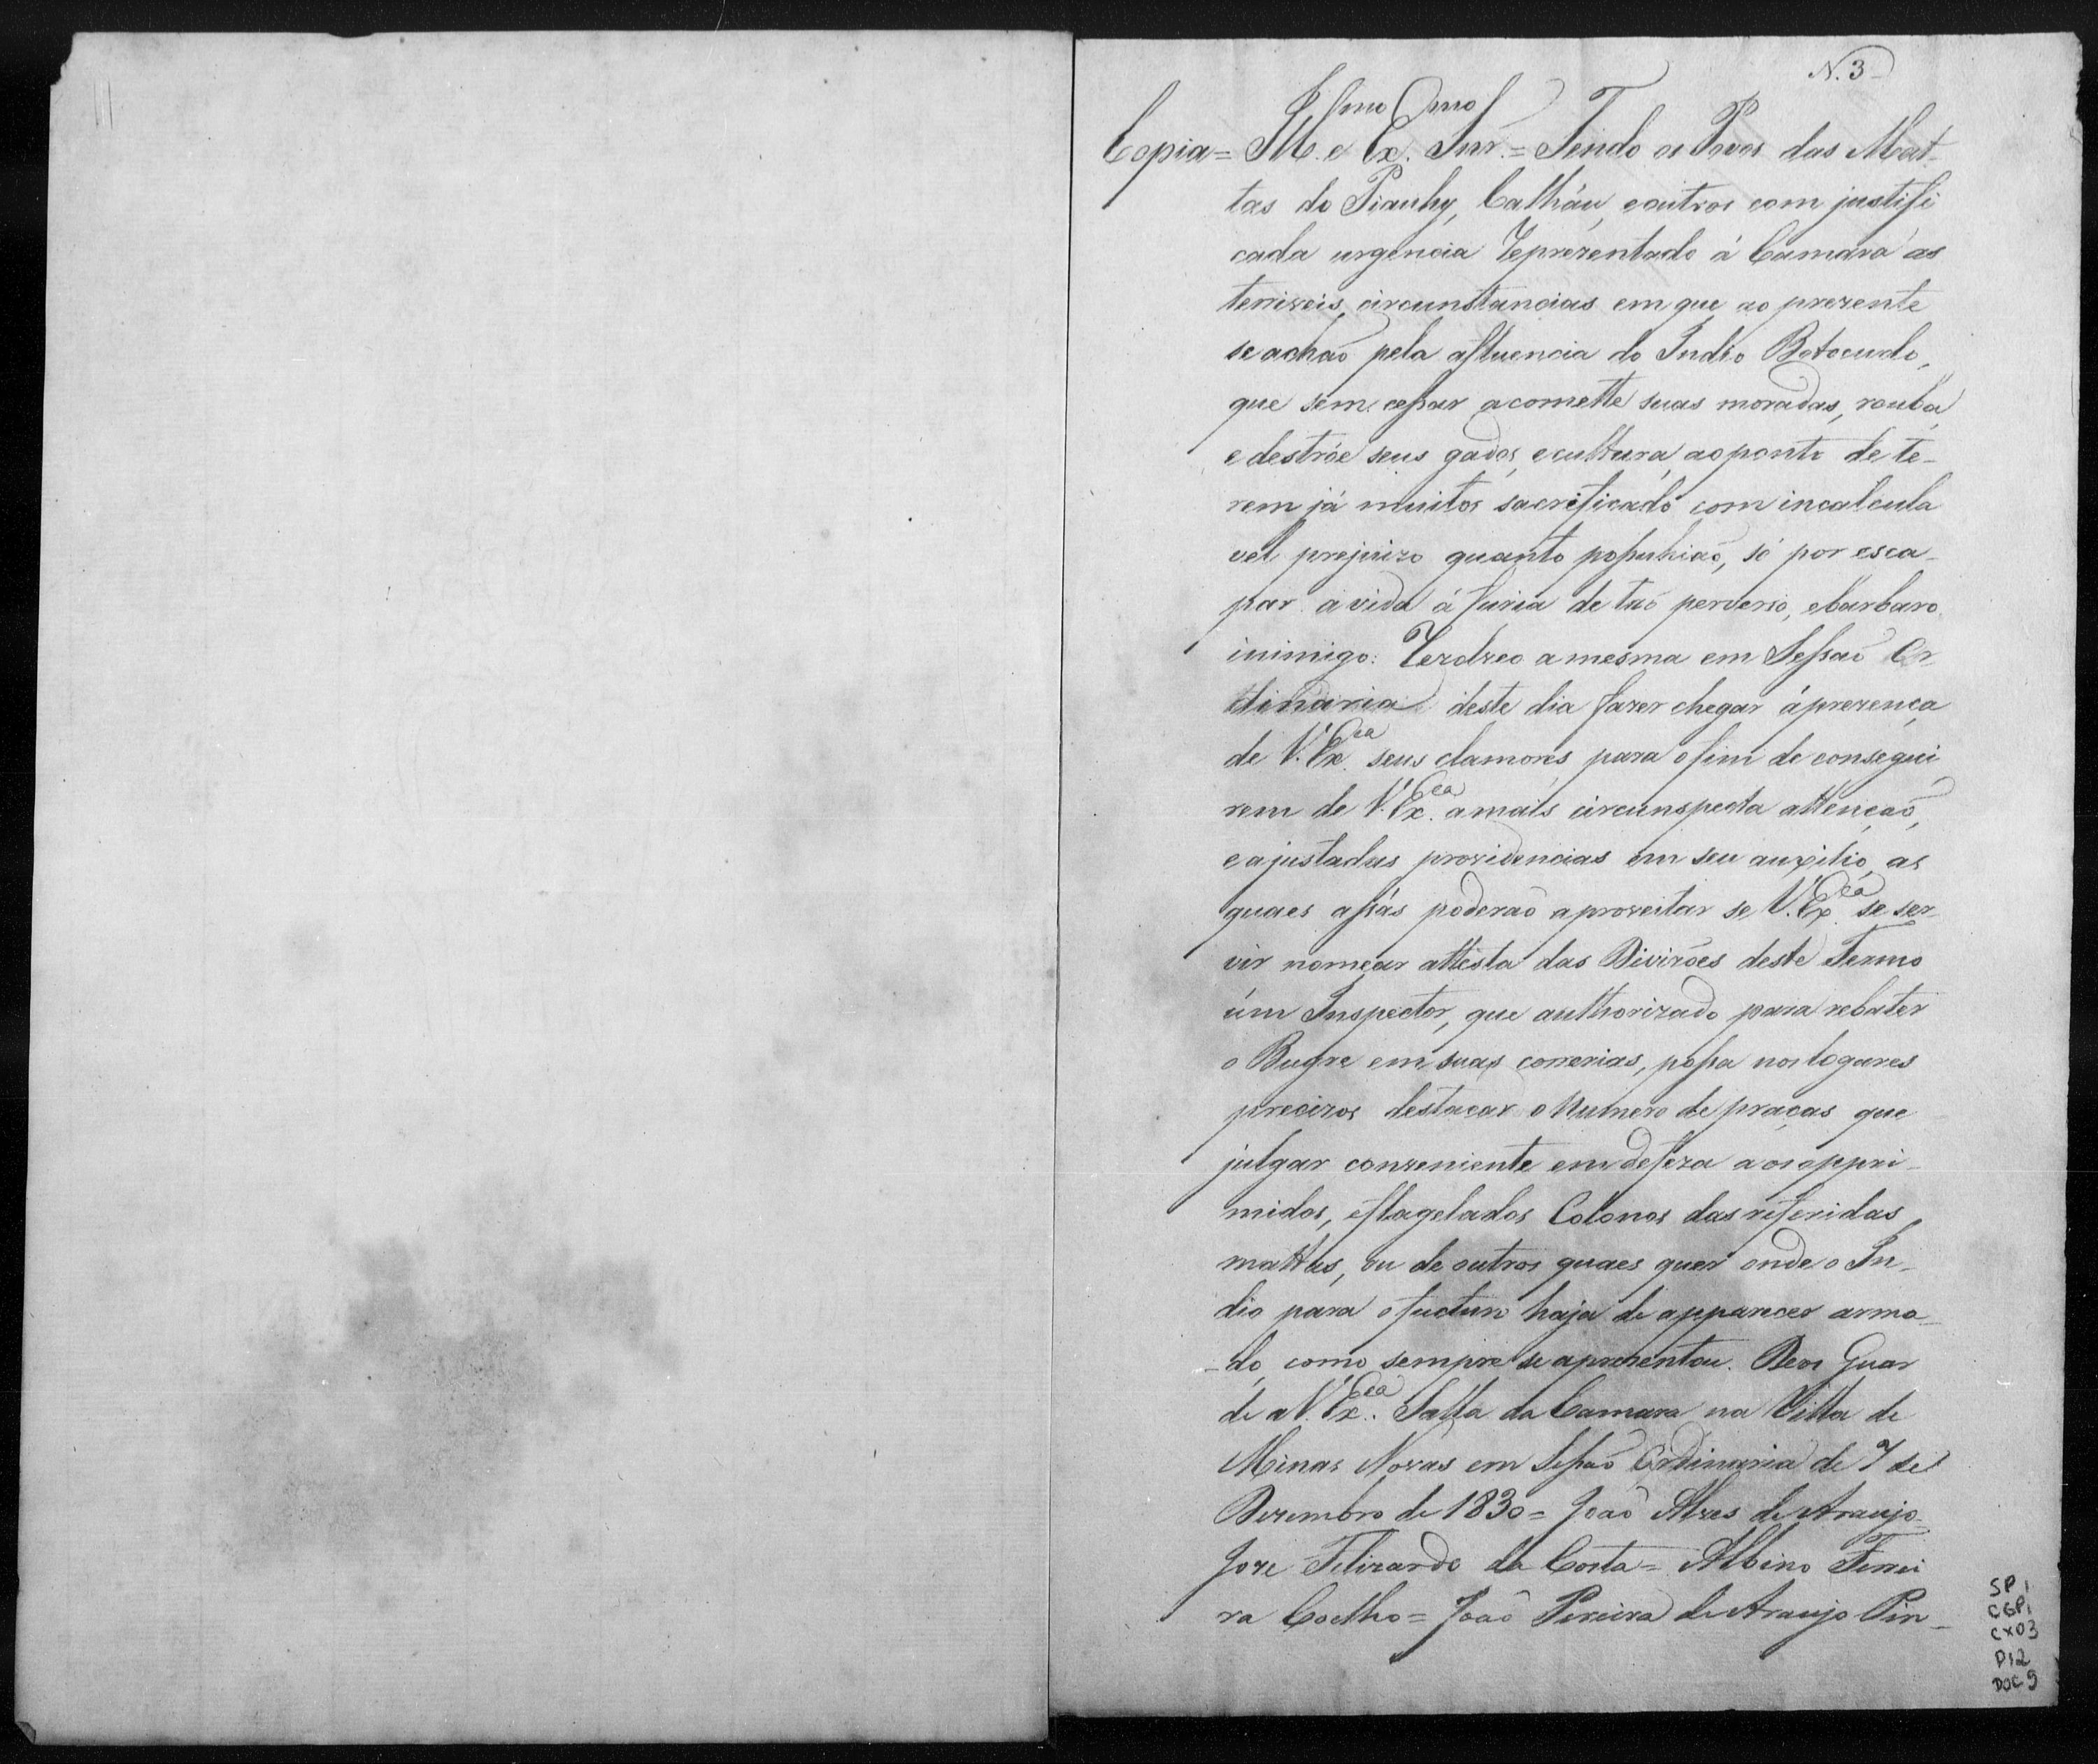 N. 3
Copia = Illmo e Exmo Snr. = Tendo os Povos das Mat-
tas do Piauhy, Calháu, e outros com justifi
cada urgencia reprezentado á Camara as
terriveis circunstancias em que ao prezente
se achaõ pela affluencia do Indio Botocudo,
que sem cessar acomette suas moradas, rouba,
e destróe seus gados, e cultura, ao ponto de te-
rem já muitos sacrificado com incalcula
vel prejuizo quanto possuhiaõ, só por esca-
par a vida á furia de taõ perverso, e barbaro
inimigo: Rezolveo a mesma em Sessaõ Or
dinaria deste dia fazer chegar á prezença
de V. Exca seus clamores para o fim de consegui
rem de V. Exca a mais circunspecta attençaõ,
e ajustadas providencias em seu auxilio, as
quaes assás poderaõ aproveitar se V. Exca se ser-
vir nomear attésta das Divizões deste Termo
úm Inspector, que authorizado para rebater
o Bugre em suas correrias, possa nos logares
precizos destacar o Numero de praças que
julgar conveniente em defeza aos oppri-
midos, e flagelados Colonos das referidas
mattas, ou de outros quaes quer onde o In-
dio para o fucturo haja de apparecer arma-
-do, como sempre se aprezentou. Deos Guar
de a V. Exca. Salla da Camara na Villa de
Minas Novas em Sessaõ Ordinaria de 7 de
Dezembro de 1830 = Joaõ Alves de Araujo =
Joze Felizardo da Costa = Albino Ferrei
ra Coelho = Joaõ Pereira de Araujo Pin-
SP 1
CGP1
CX03
P12
DOC 9